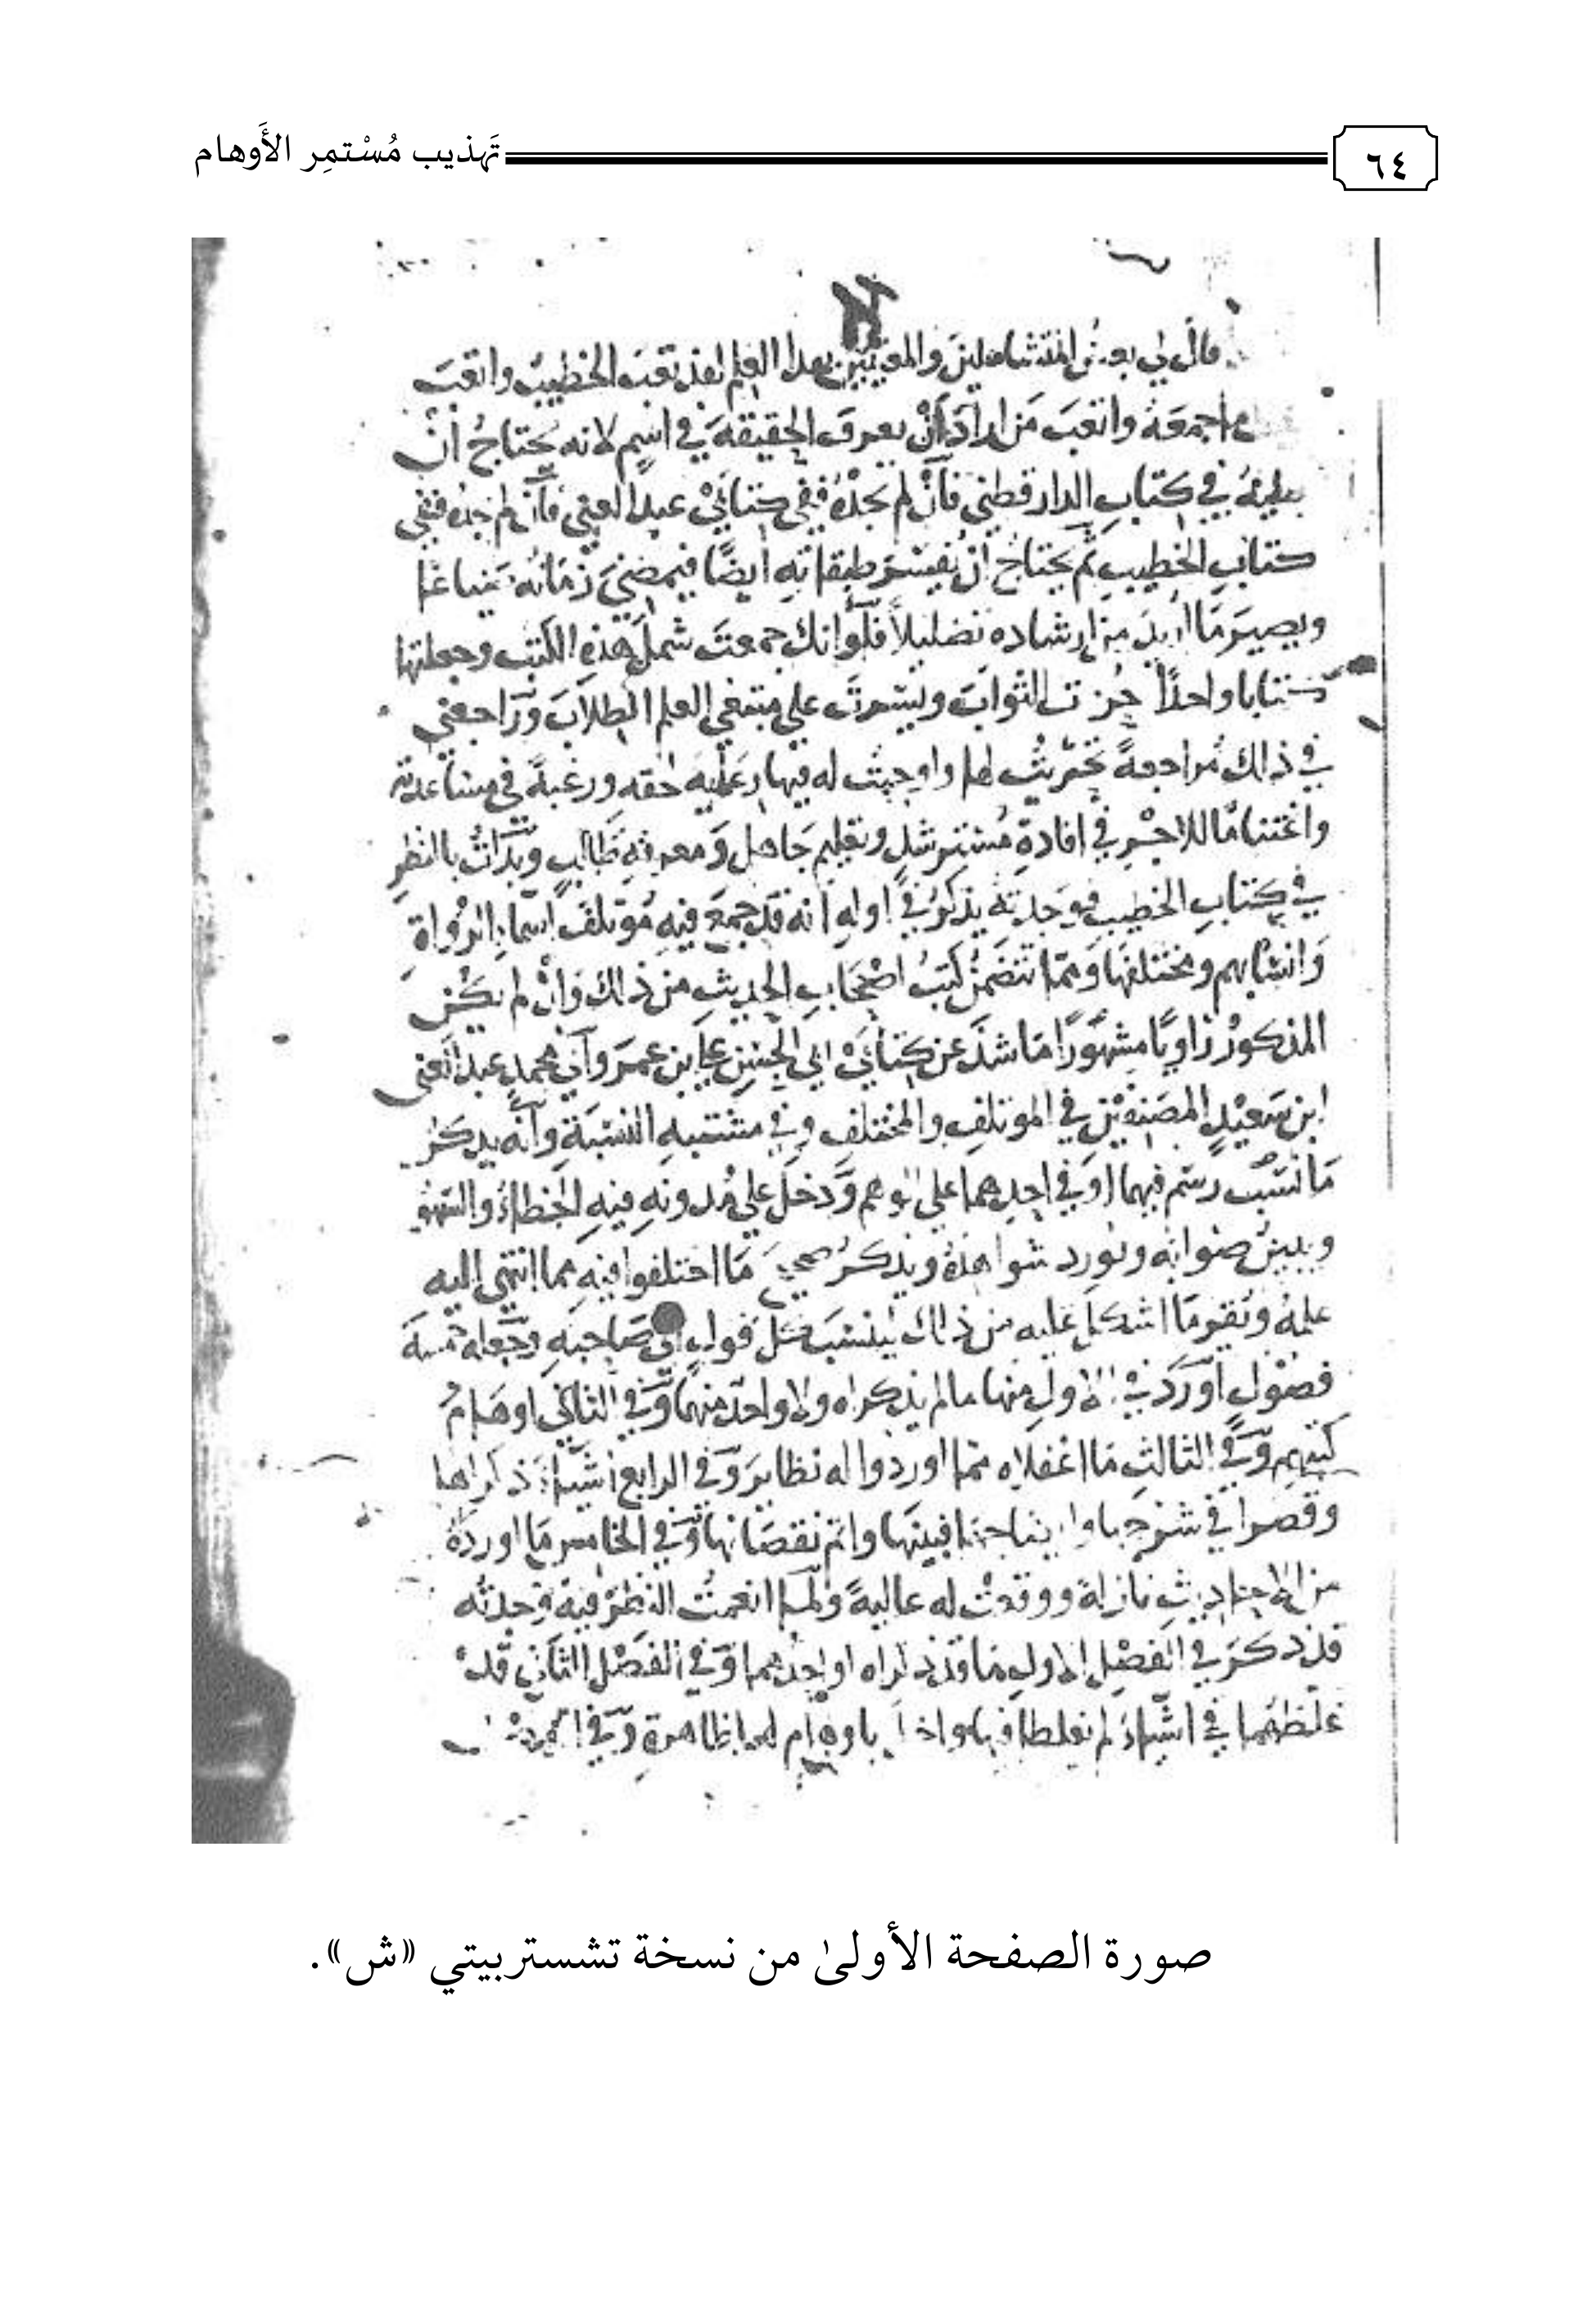 ٦٤
تَهذيب مُسْتمِر الأَوهام
قال لي بعض المتشاغلين والمعنيين بهذا العلم لقد تعب الخطيب واتعب
اجمعه واتعب من اراد ان يعرف الحقيقة في اسم لانه يحتاج ان
يطلبه في كتاب الدارقطني فان لم يجده ففي كتابي عبد الغني فان لم يجده ففي
كتاب الخطيب ثم يحتاج ان يفتش طبقاته ايضا فيمضي زمانه ضياعا
ويصير ما اريد من ارشاده تضليلا فلو انك جمعت شمل هذه الكتب وجعلتها
كتابا واحدا حزت الثواب ويسرت على مبتغي العلم الطلاب وراجعني
في ذلك مراجعة تحريت لها واوجبت له فيها رعاية حقه ورغبة في مساعدته
واغتناما للاجر في افادة مسترشد وتعليم جاهل ومعرفة طالب وبدات بالنظر
في كتاب الخطيب فوجدته يذكر في اوله انه قد جمع فيه مؤتلف اسماء الرواة
وانسابهم ومختلفها ومما تتضمن كتب اصحاب الحديث من ذلك وان لم يكن
المذكور راويا مشهورا ما شذ عن كتابي ابي الحسن علي بن عمر وابي محمد عبد الغني
ابن سعيد المصنفين في المؤتلف والمختلف وفي مشتبه النسبة وانه يذكر
ما رسم فيهما او في احدهما على الوهم ودخل على مدونه فيه الخطاء والسهو
ويبين صوابه ويورد شواهده ويذكر صحيح ما اختلفوا فيه مما انتهى اليه
علمه وتقوما اشكل عليه من ذلك ينسب كل قول الى صاحبه وجعله خمسة
فصول اورد في الاول منها ما لم يذكراه ولا واحد منهما وفي الثاني اوهام
كتبهم وفي الثالث ما اغفلاه مما اوردوا له نظاير وفي الرابع اشياء ذكراها
وقصرا في شرحها فبينها واتم نقصانها وفي الخامس ما اورده
من الاحاديث نازلة ووقعت له عالية ولما انعمت النظر فيه وجدته
قد ذكر في الفصل الاول ما قد ذكراه او احدهما وفي الفصل الثاني قد
غلطهما في اشياء لم يغلطا فيها باوهام لهما ظاهرة وفي
صورة الصفحة الأولىٰ من نسخة تشستربيتي «ش».